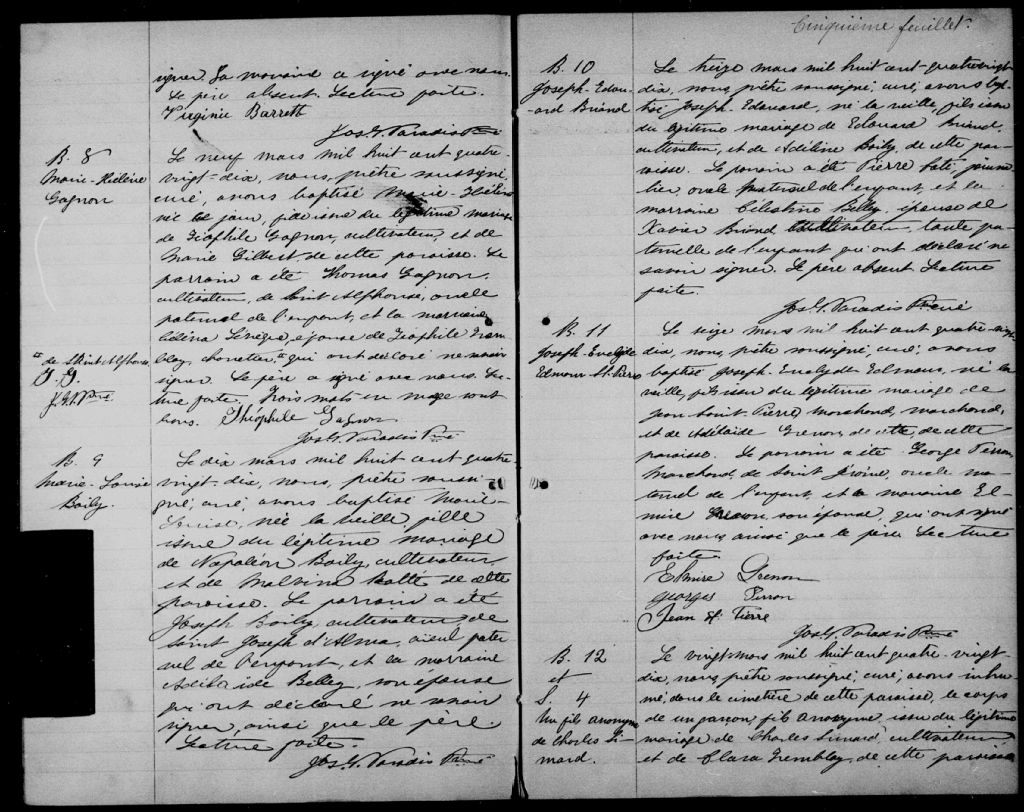 signer. La marraine a signé avec nous.
Le père absent. Lecture faite.
Virginie Barrett
Jos. G. Paradis Ptre
B. 8
Marie-Hélène
Gagnon
Le neuf mars mil huit cent quatre-
vingt-dix, nous, prêtre soussigné,
curé, avons baptisé Marie-Hélène
née ce jour, fille issue du légitime mariage
de Théophile Gagnon, cultivateur, et de
Marie Gilbert de cette paroisse. Le
parrain a été Thomas Gagnon,
cultivateur, de Saint Alphonse, oncle
paternel de l'enfant, et la marraine
épouse de Théophile Trem-
blay, # qui ont déclaré ne savoir
signer. Le père a signé avec nous. Lec-
ture faite. Trois mots en marge sont
bons. Théophile Gagnon
Jos. G. Paradis Ptre
# de Saint Alphonse
T. G.
J. G. P. Ptre
B. 9
Marie-Louise
Boily.
Le dix mars mil huit cent quatre-
vingt-dix, nous, prêtre sous-
igné, curé, avons baptisé Marie-
Louise, née la veille, fille
issue du légitime mariage
de Napoléon Boily, cultivateur,
et de Malvina de cette
paroisse. Le parrain a été
Joseph Boily, cultivateur, de
Saint Joseph d'Alma, aieul pater-
nel de l'enfant, et la marraine
Adélaïde Belley, son épouse
qui ont déclaré ne savoir
signer, ainsi que le père.
Lecture faite.
Jos. G. Paradis Ptre
Cinquième feuillet.
B. 10
Joseph-Edou-
ard Briand
Le treize mars mil huit cent quatre-vingt
dix, nous, prêtre soussigné, curé, avons bap-
tisé Joseph-Edouard, né la veille, fils issu
du légitime mariage de Edouard Briand,
cultivateur, et de Adéline Boily, de cette pa-
roisse. Le parrain a été Pierre Coté, journa-
lier, oncle maternel de l'enfant, et la
marraine Célestine Belley, épouse de
Xavier Briand cultivateur, tante pa-
ternelle de l'enfant qui ont déclaré ne
savoir signer. Le père absent. Lecture
faite.
Jos. G. Paradis Ptre curé
B. 11
Joseph-Evelyde
Edmour St. Pierre
Le seize mars mil huit cent quatre-vingt-
dix, nous, prêtre soussigné, curé, avons
baptisé Joseph-Evelyde Edmour, né la
veille, fils issu du légitime mariage de
Jean Saint-Pierre, marchand, marchand,
et de Adélaide Grenon, de cette, de cette
paroisse. Le parrain a été George Perron,
marchand, de Saint Jérôme, oncle ma-
ternel de l'enfant, et la marraine El-
mire Grenon, son épouse, qui ont signé
avec nous, ainsi que le père. Lecture
faite.
Elmire Grenon
Georges Perron
Jean St Pierre
Jos. G. Paradis Ptre
B. 12
et
S. 4
Un fils anonyme
de Charles Si-
mard.
Le vingt mars mil huit cent quatre-vingt-
dix, nous prêtre soussigné, curé, avons inhu-
mé, dans le cimetière de cette paroisse, le corps
de un garçon, fils anonyme, issu du légitime
mariage de Charles Simard, cultivateur
et de Clara Tremblay, de cette paroisse